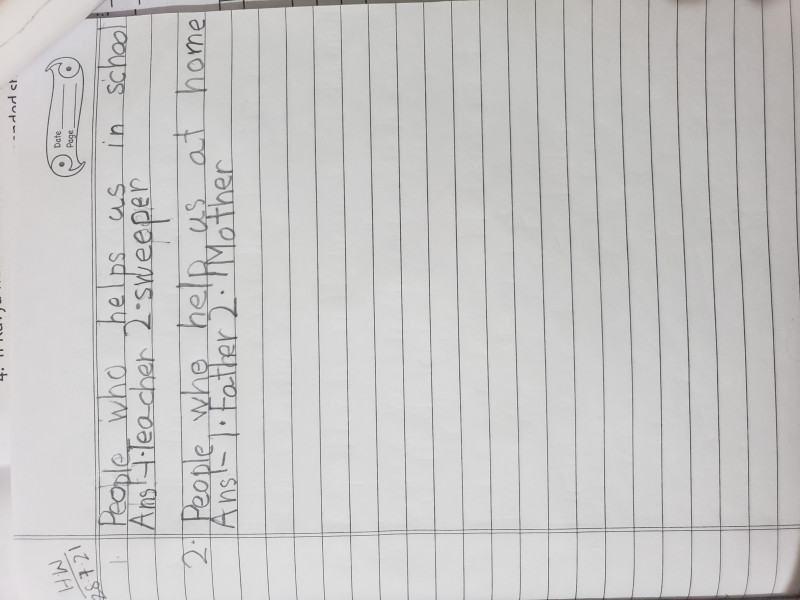 HW
28.7.21
Date
Page
1. People who helps us in school
Ans - 1. Teacher 2. sweeper
2. People who help us at home
Ans - 1. Father 2. Mother